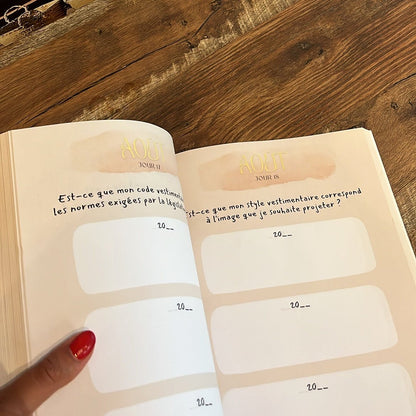 AOÛT
JOUR 17
Est-ce que mon code vestim
les normes exigées par la législa
20__
20__
20__
AOÛT
JOUR 18
Est-ce que mon style vestimentaire correspond
à l'image que je souhaite projeter ?
20__
20__
20__